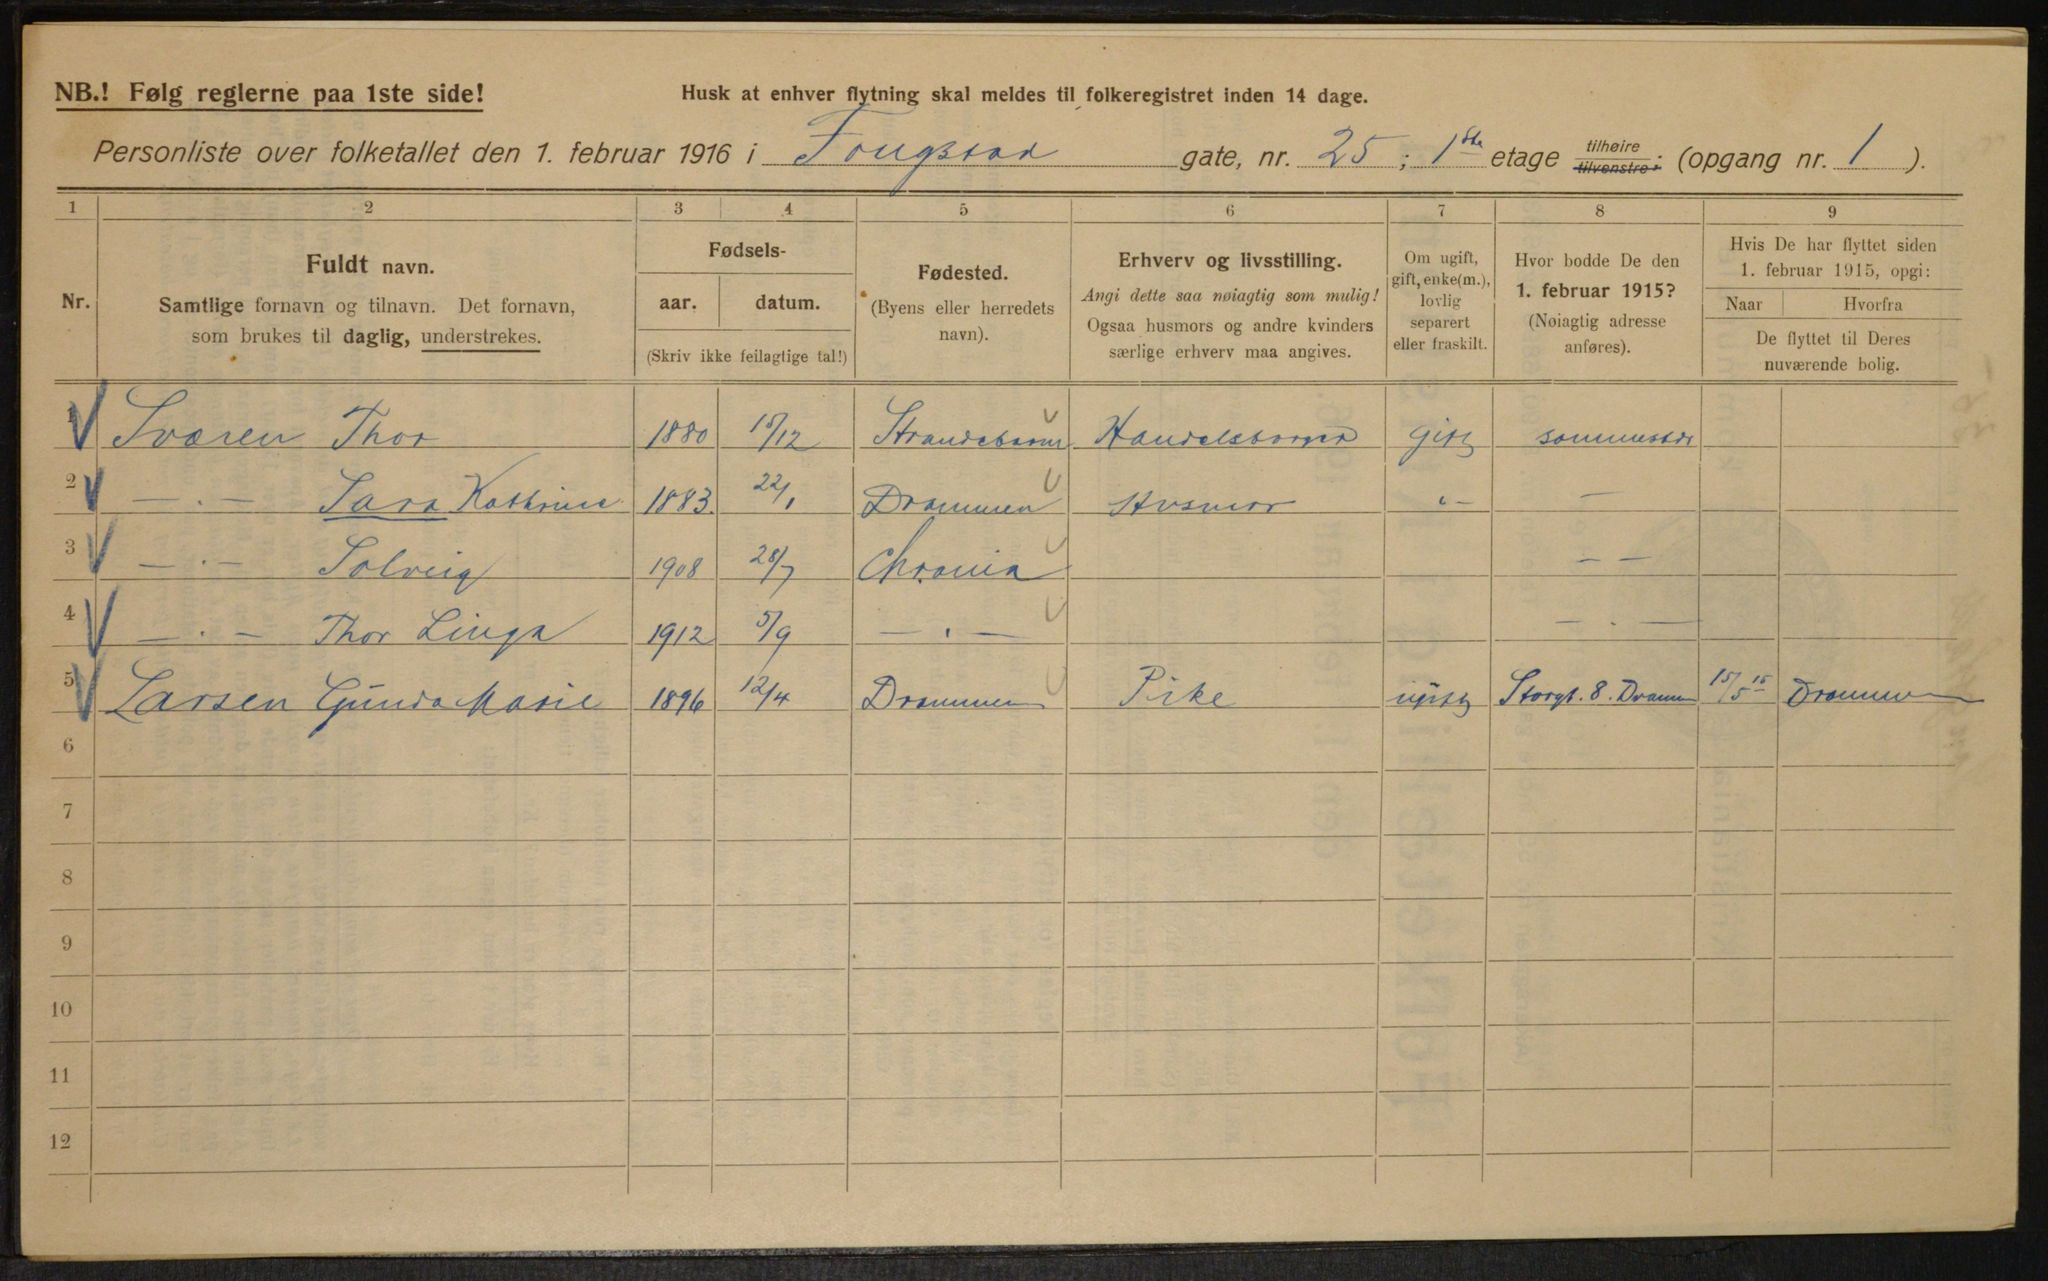 NB.! Følg reglerne paa 1ste side!
Husk at enhver flytning skal meldes til folkeregistret inden 14 dage.
Personliste over folketallet den 1. februar 1916 i Fougstad gate, nr. 25; 1ste etage tilhøire tilvenstre; (opgang nr. 1).
1 2 3 4 5 6 7 8 9
Nr.
Fuldt navn.
Samtlige fornavn og tilnavn. Det fornavn,
som brukes til daglig, understrekes.
Fødsels-
aar. datum.
(Skriv ikke feilagtige tal!)
Fødested.
(Byens eller herredets
navn).
Erhverv og livsstilling.
Angi dette saa nøiagtig som mulig!
Ogsaa husmors og andre kvinders
særlige erhverv maa angives.
Om ugift,
gift, enke(m.),
lovlig
separert
eller fraskilt.
Hvor bodde De den
1. februar 1915?
(Nøiagtig adresse
anføres).
Hvis De har flyttet siden
1. februar 1915, opgi:
Naar Hvorfra
De flyttet til Deres
nuværende bolig.
1 Sværen Thor 1880 18/12 Strandebarm Handelsborger gift sammested
2 — . — Sara Kathrine 1883. 22/1 Drammen Husmor " — —
3 — . — Solveig 1908 28/7 Chrania — —
4 — . — Thor Linga 1912 5/9 — . — — . —
5 Larsen Gunda Marie 1896 12/4 Drammen Pike ugift Storgt. 8. Dramm 15/5 15 Drammen
6
7
8
9
10
11
12